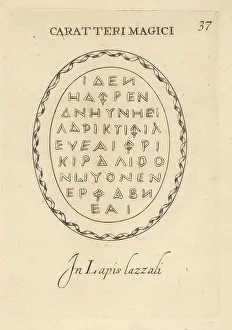 37
CARATTERI MAGICI
ΙΔΕΝ
ΗΑΦΡΕΝ
ΔΝΗΥΝΗΕΙ
ΛΔΡΙΚΤΙΦΙΛ
ΕΥΕΔΙΦΡΙ
ΚΙΡΑΛΙΘΟ
ΝΩΥΟΝΕΝ
ΕΡΦΔΒΝ
ΕΑΙ
In Lapis lazzali